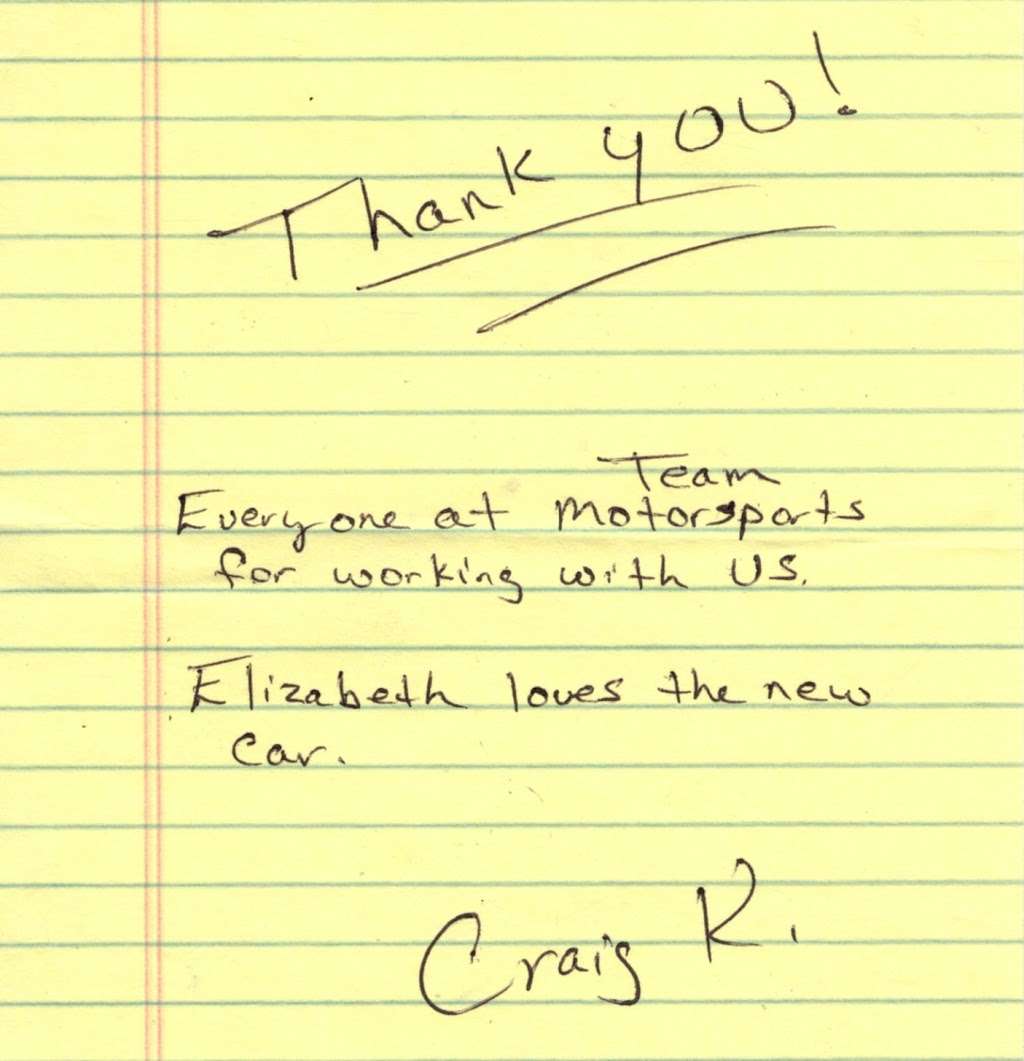 Thank you!
Team
Everyone at Motorsports
for working with us.
Elizabeth loves the new
car.
Craig K.